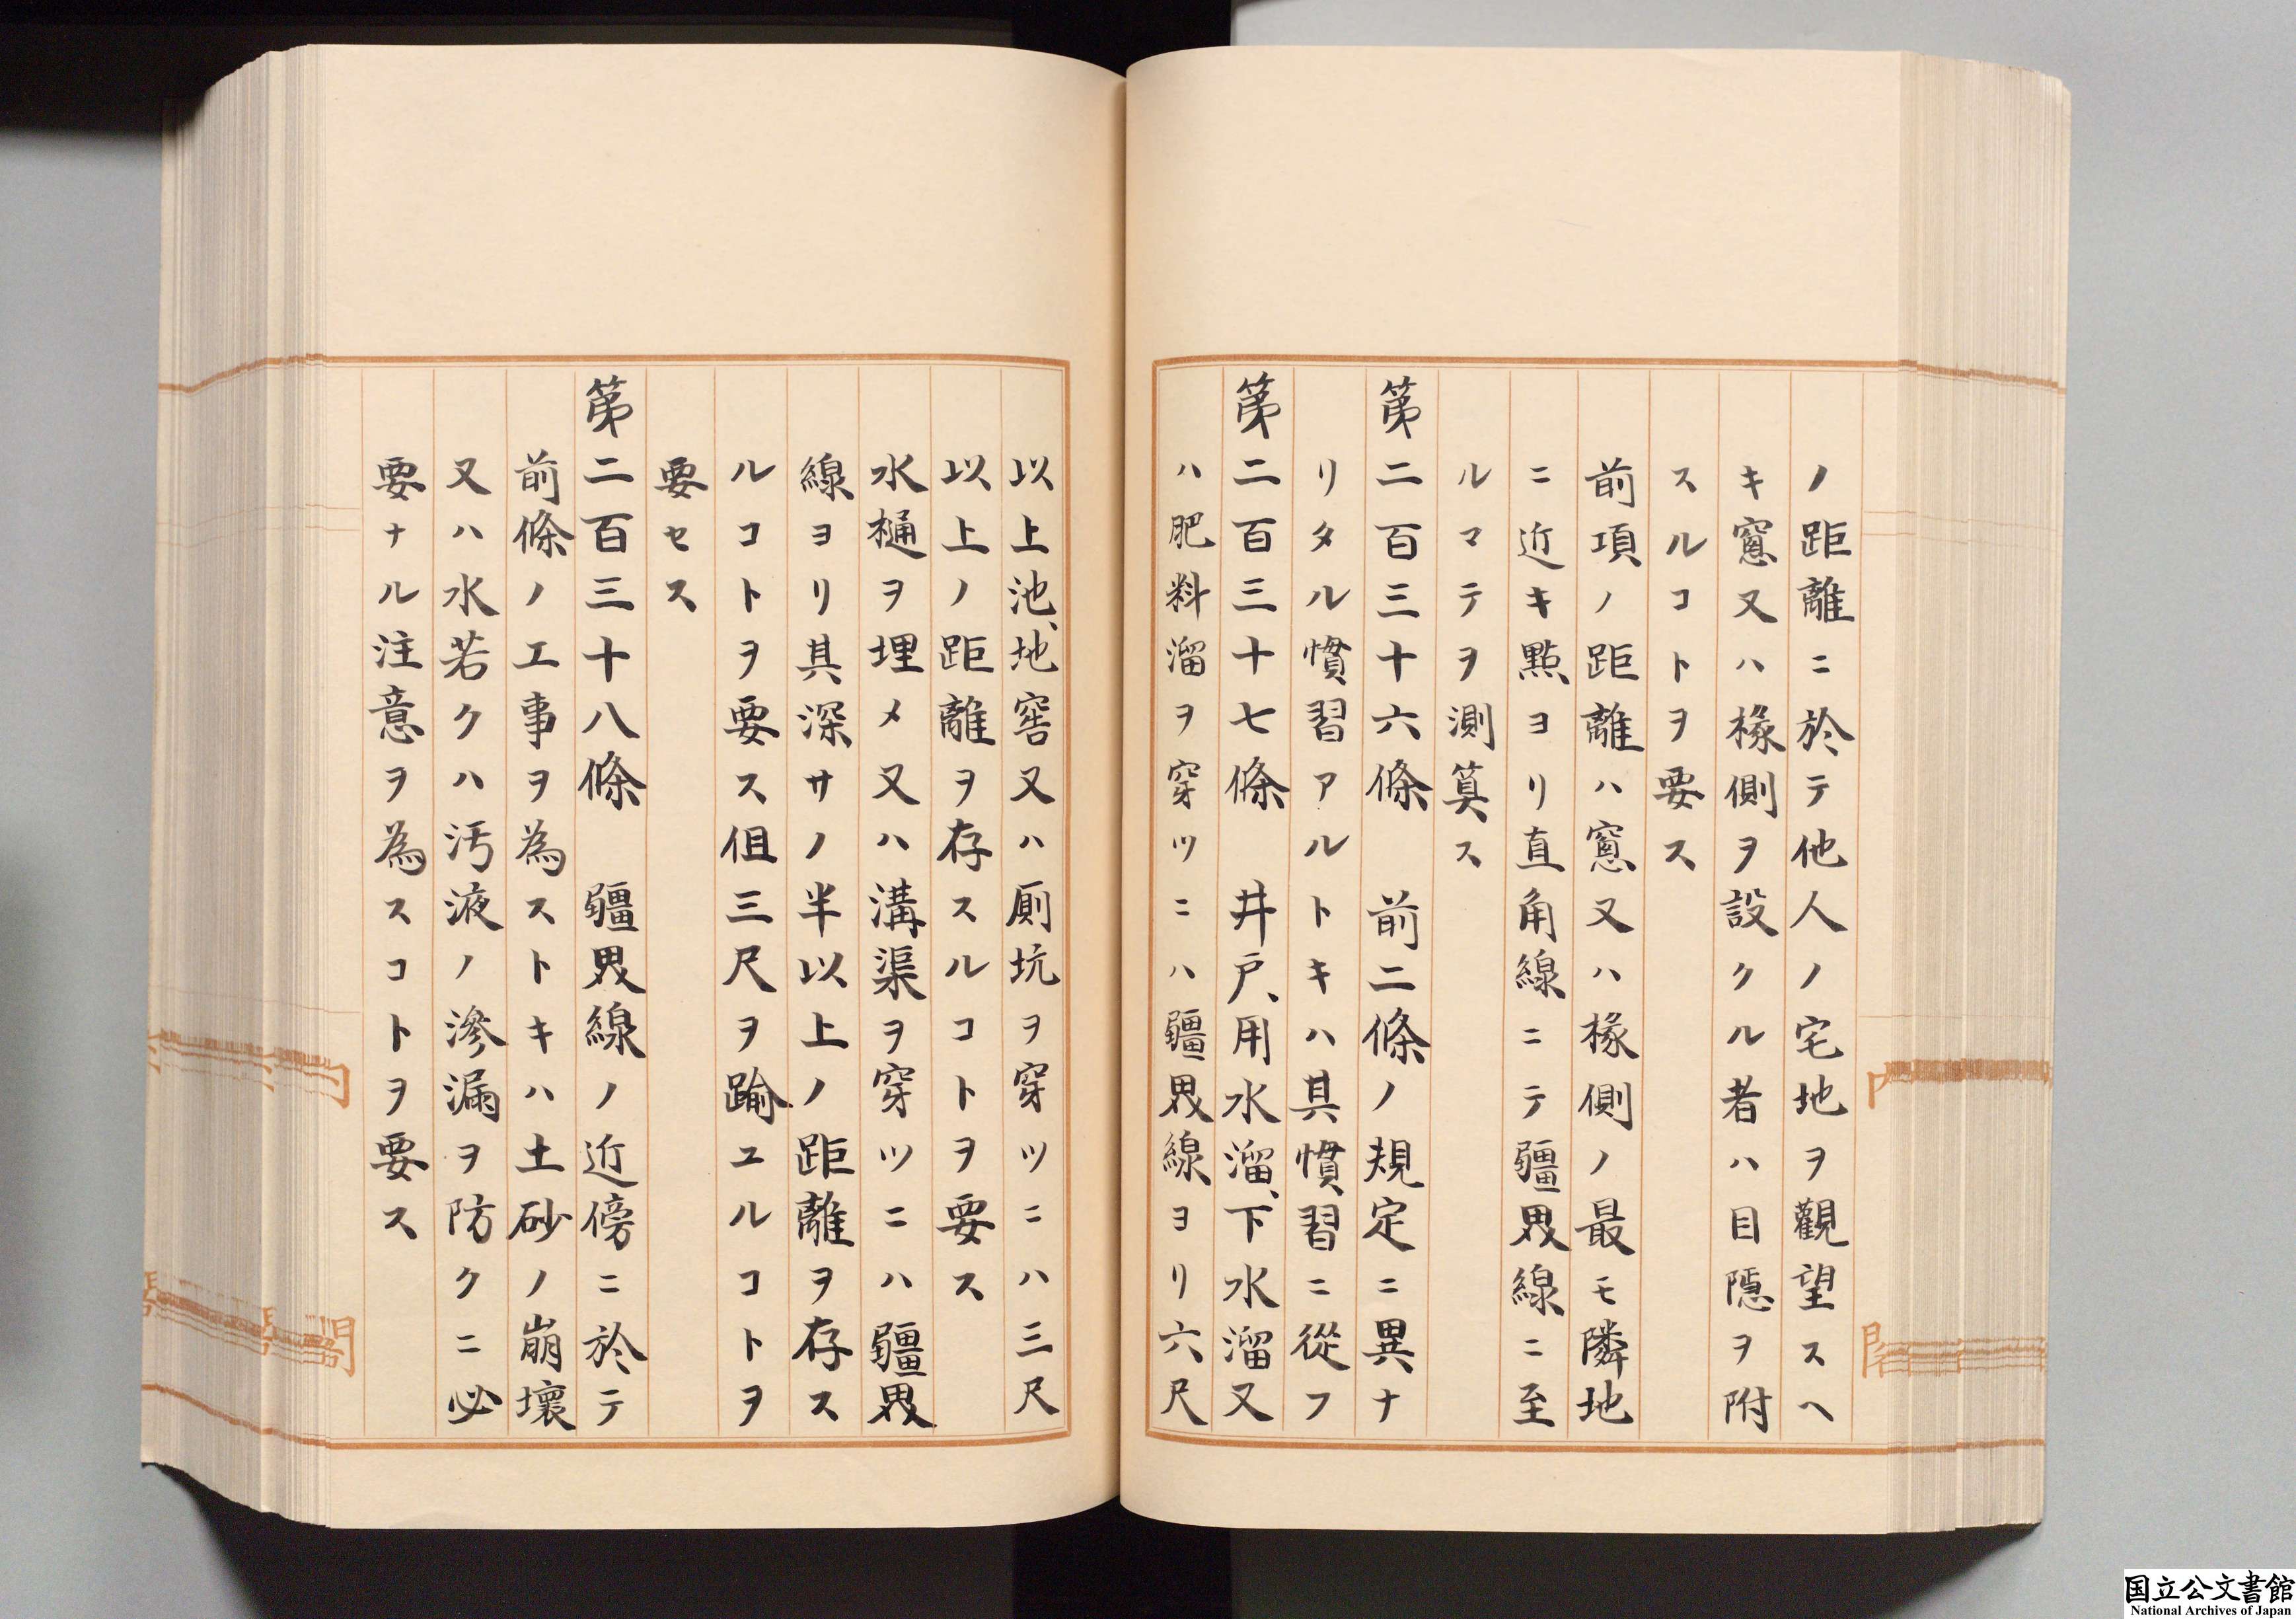 ノ距離ニ於テ他人ノ宅地ヲ觀望スヘ
キ窻又ハ椽側ヲ設クル者ハ目隱ヲ附
スルコトヲ要ス
前項ノ距離ハ窻又ハ椽側ノ最モ隣地
ニ近キ點ヨリ直角線ニテ疆界線ニ至
ルマテヲ測算ス
第二百三十六條　前二條ノ規定ニ異ナ
リタル慣習アルトキハ其慣習ニ從フ
第二百三十七條　井戸、用水溜、下水溜又
ハ肥料溜ヲ穿ツニハ疆界線ヨリ六尺
以上池、地窖又ハ厠坑ヲ穿ツニハ三尺
以上ノ距離ヲ存スルコトヲ要ス
水樋ヲ埋メ又ハ溝渠ヲ穿ツニハ疆界
線ヨリ其深サノ半以上ノ距離ヲ存ス
ルコトヲ要ス但三尺ヲ踰ユルコトヲ
要セス
第二百三十八條　疆界線ノ近傍ニ於テ
前條ノ工事ヲ為ストキハ土砂ノ崩壞
又ハ水若クハ汚液ノ滲漏ヲ防クニ必
要ナル注意ヲ為スコトヲ要ス
国立公文書館
National Archives of Japan